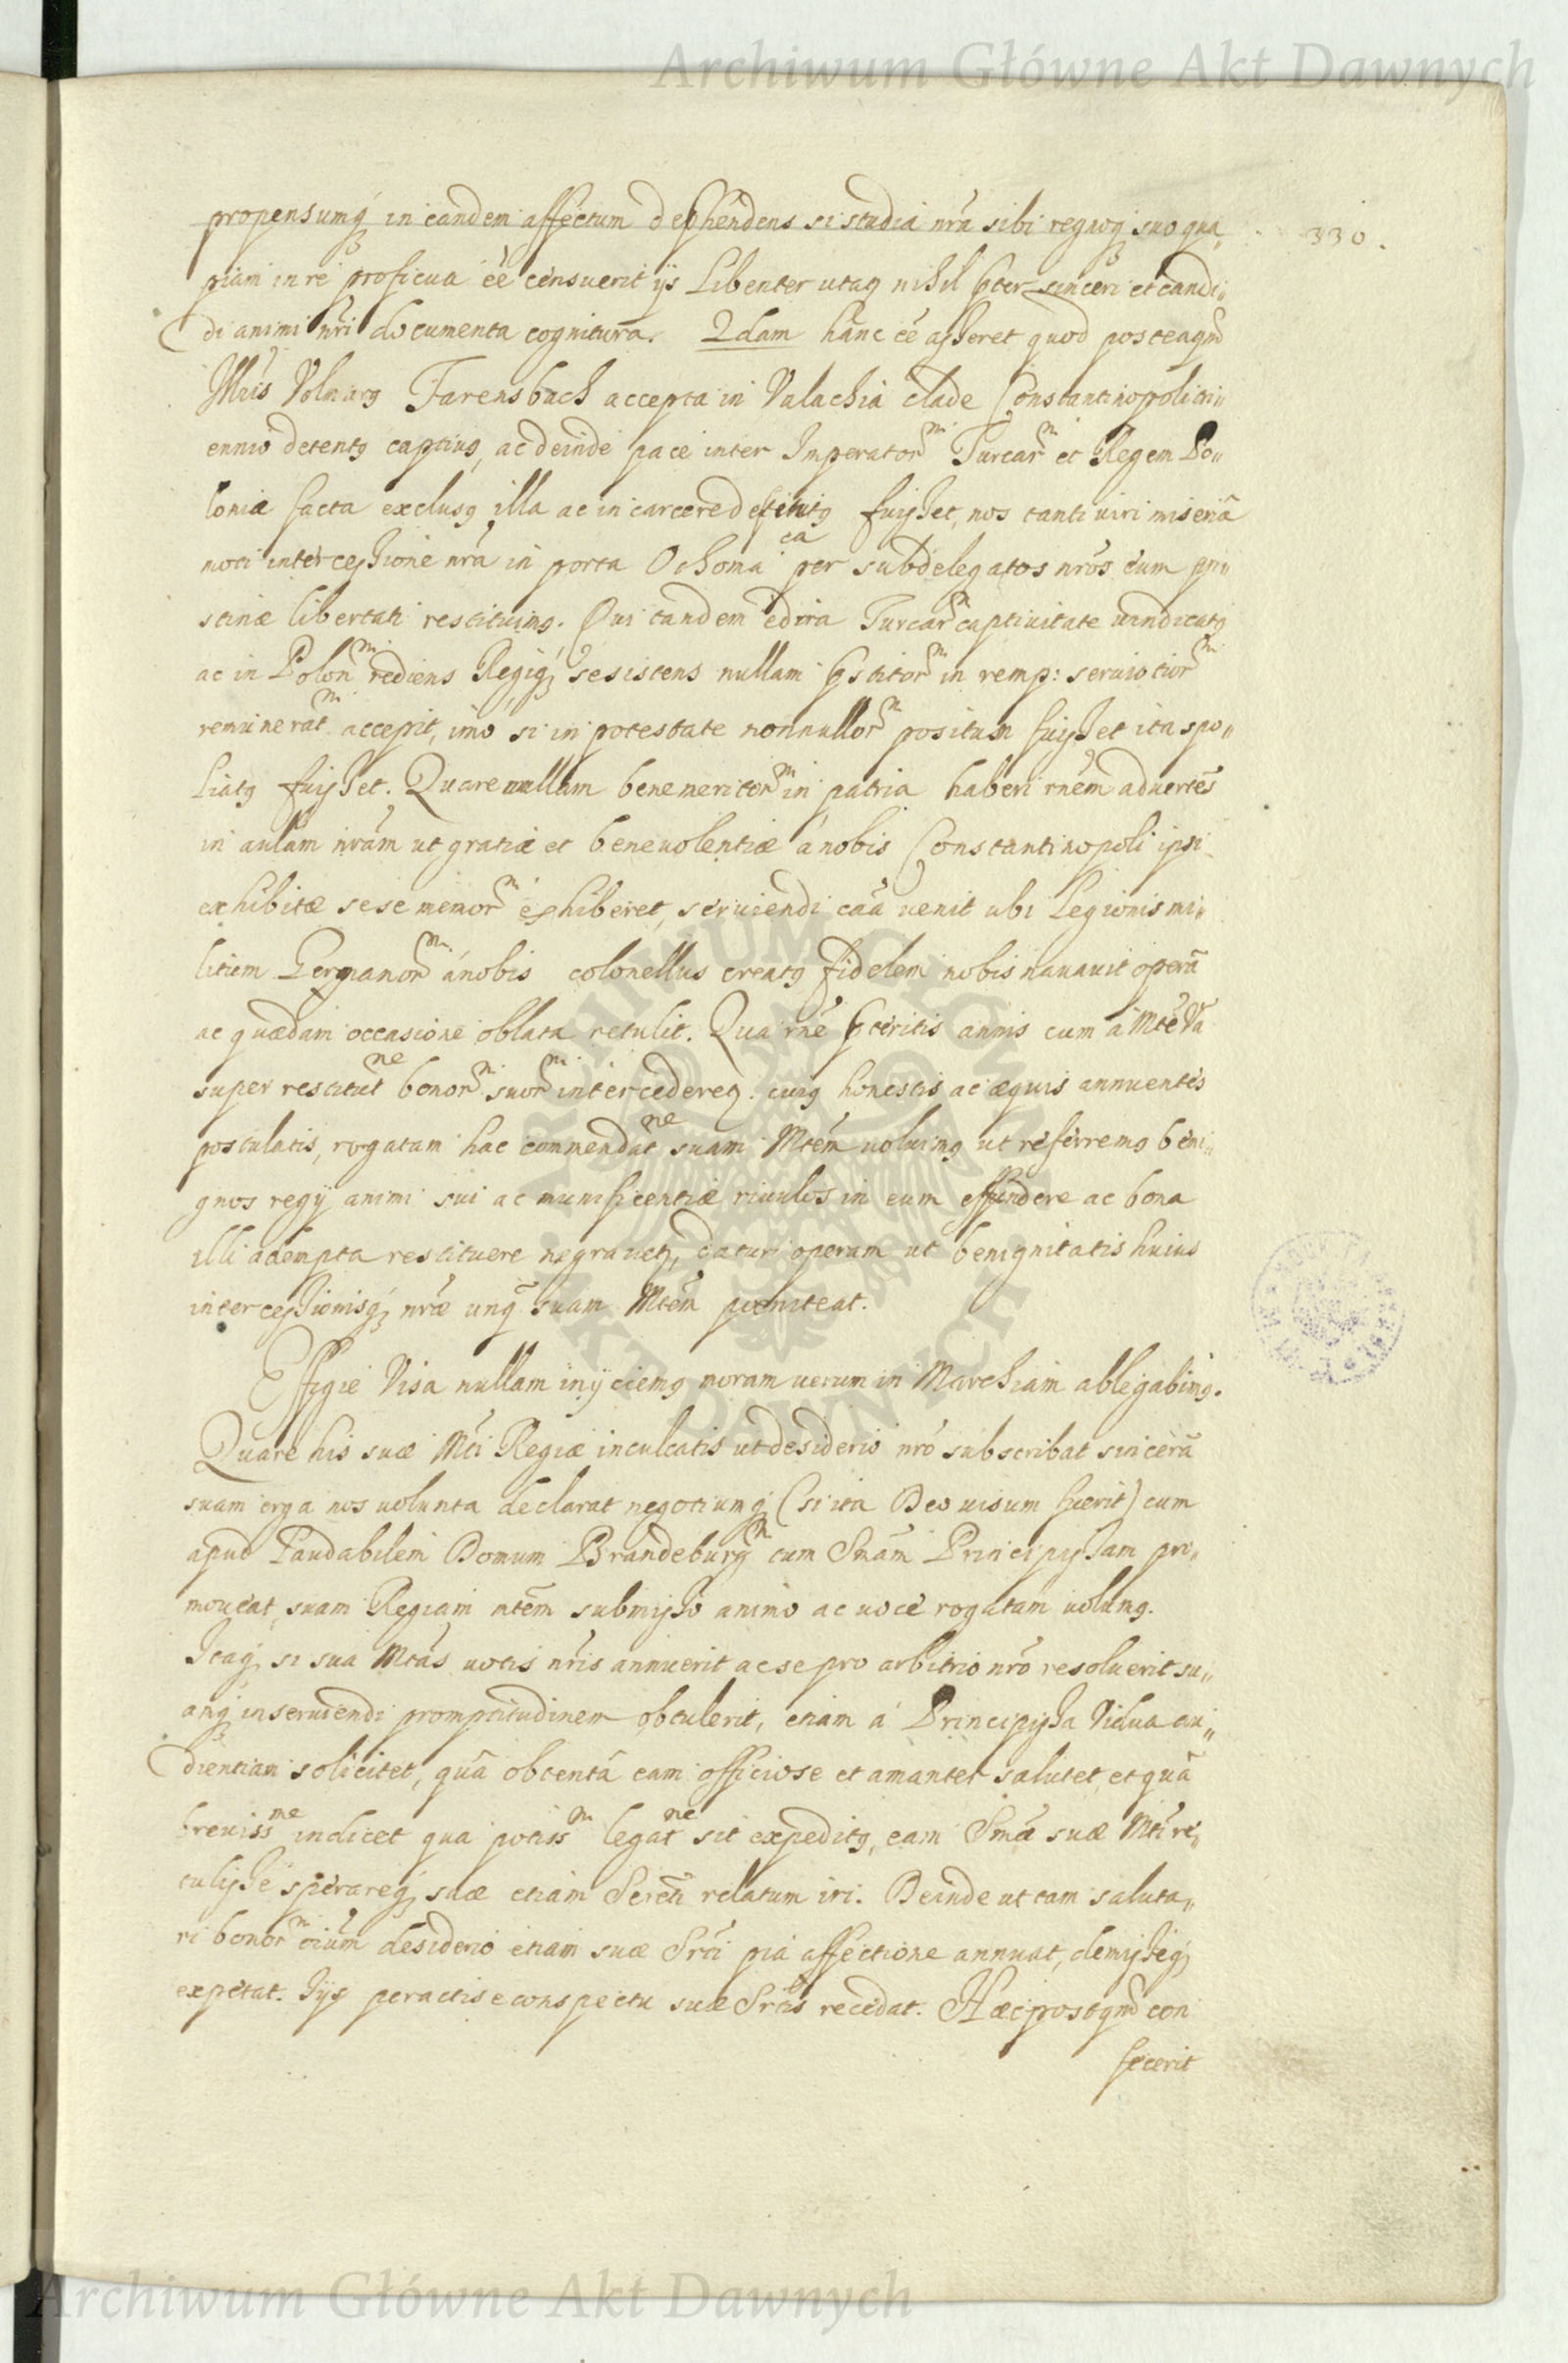 Archiwum Główne Akt Dawnych
330.
propensumq in eandem affectum dephendens si studia nrã sibi regnoq suo qua„
piam in re proficua eẽ censuerit ijs libenter utaq nihil pter sinceri et candi„
di animi nri documenta cognitura. 2dam hanc eẽ asseret quod posteaqm̃
Illris Volmarg Farensbach accepta in Valachia clade Constantinopoli tri„
ennio detentg captiug, ac deinde pace inter Imperatorm Turcarm et Regem Po„
loniæ facta exclusg illa ac in carcere fuisset, nos tanti uiri miseriã
moti intercessione nrã in porta Othomaca per subdelegatos nros eum pri„
stinæ libertati restituimg. Qui tandem e dira Turcarm captiuitate uindicatg
ac in Polonm rediens Regiq se sistens nullam pstitorm in remp: seruitiorm
remuneratm accepit, imo si in potestate nonnullorm positum fuisset ita spo„
liatg fuisset. Quare nullam benemeritorm in patria haberi rnẽm aduertẽs
in aulam nrãm ut gratiæ et beneuolentiæ á nobis Constantinopoli ipsi
exhibitæ sese memorm exhiberet, seruiendi caã uenit ubi Legionis mi„
litum Germanorm á nobis colonellus creatg fidelem nobis nauauit operã
ac quædam occasione oblata retulit. Qua rnẽ pteritis annis cum á Mtẽ Vã
super restitutne bonorm suorm intercedereq: cuig honestis ac æquis annuentes
postulatis, rogatam hac commendatne suam Mtẽm uoluimg ut referremg beni„
gnos regij animi sui ac munificentiæ riuulos in eum effundere ac bona
illi adempta restituere ne grauetq, daturi operam ut benignitatis huius
intercessionisq nræ unq̃ suam Mtẽm pœniteat.
Effigie Visa nullam inijciemg moram uerum in Marchiam ablegabimg.
Quare his suæ Mti Regiæ inculcatis ut desiderio nro subscribat sincerã
suam erga nos uolunta declarat negotiumq (si ita Deo uisum fuerit) cum
apud Laudabilem Domum Brandeburgm cum Smãm Principissam pro„
moueat, suam Regiam mtẽm submisso animo ac uoce rogatam uolumg.
Itaq si sua Mtas uotis nris annuerit ac se pro arbitrio nro resoluerit su„
amq inseruiendi promptitudinem obtulerit, etiam á Principissa Vidua au„
dientiam solicitet, quã obtentã eam officiose et amanter salutet, et quã
breuissme indicet qua potissm legatne sit expeditg, eam Smæ suæ Mti re„
tulisse sperareq suæ etiam Serẽti relatum iri. Deinde ut tam saluta„
ri bonorm oium desiderio etiam suæ Srti pia affectione annuat, demisseq
expetat. Ijs peractis e conspectu suæ Srtis recedat. Hæc postqm̃ con
fecerit
Archiwum Główne Akt Dawnych